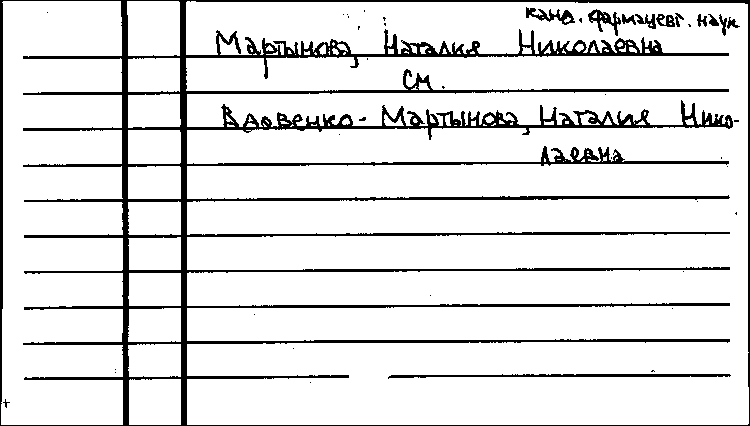 канд. фармацевт. наук
Мартынова, Наталия Николаевна
см.
Вдовенко-Мартынова, Наталия Нико-
лаевна